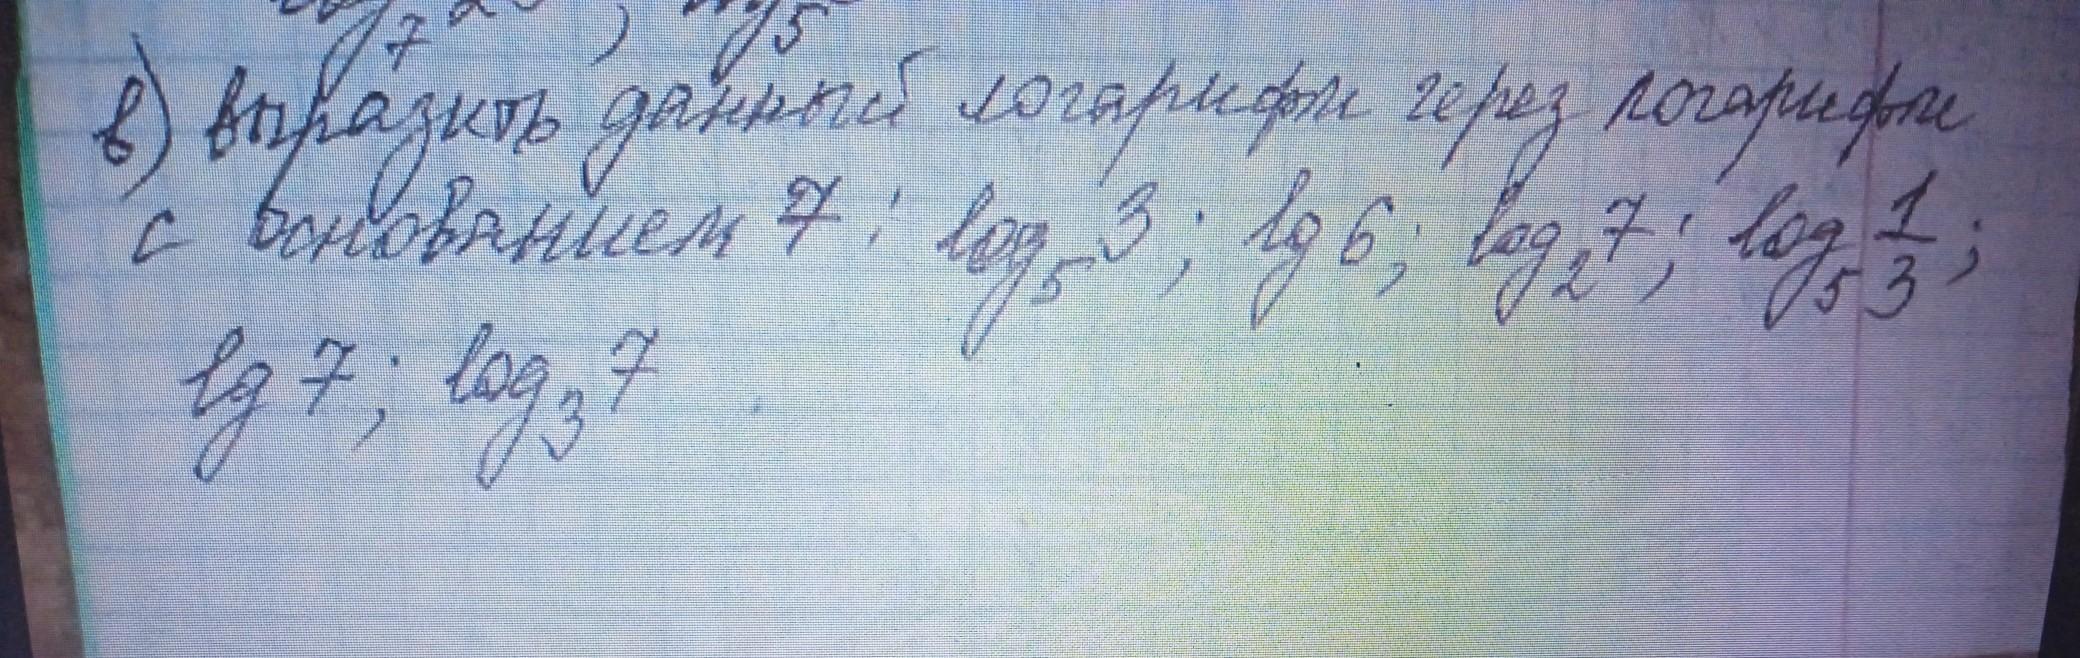 в) выразить данный логарифм через логарифм
с основанием 7: log₅ 3; lg 6; log₂ 7; log₅ 1/3;
lg 7; log₃ 7